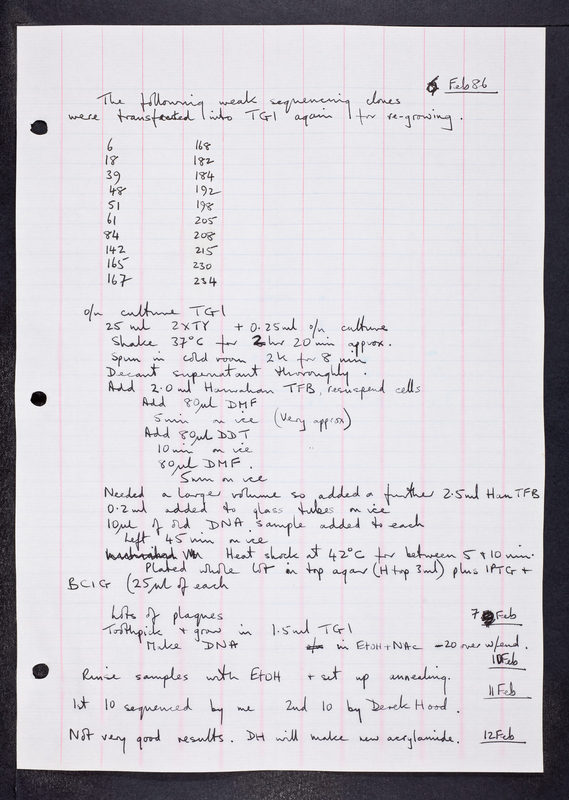 6 Feb 86
The following weak sequencing clones
were transfected into TG1 again for re-growing.
6 168
18 182
39 184
48 192
51 198
61 205
84 208
142 215
165 230
167 234
o/n culture TG1
25 ml 2xTY + 0.25ml o/n culture
Shake 37°C for 2hr 20min approx.
Spun in cold room 2k for 8 min
Decant supernatant thoroughly.
Add 2.0ml Hannahan TFB, resuspend cells
Add 80µl DMF
5min on ice (Very approx)
Add 80µl DDT
10min on ice "
80µl DMF.
5min on ice
Needed a larger volume so added a further 2.5ml Han TFB
0.2ml added to glass tubes on ice
10µl of old DNA sample added to each
Left 45min on ice
Heat shock at 42°C for between 5 + 10 min.
Plated whole lot in top agar (H top 3ml) plus IPTG +
BCIG (25µl of each
Lots of plaques 7 Feb
Toothpick + grow in 1.5ml TG1
Make DNA in EtOH + NAc -20 over w/end.
10 Feb
Rinse samples with EtOH + set up annealing.
11 Feb
1st 10 sequenced by me 2nd 10 by Derek Hood.
Not very good results. DH will make new acrylamide. 12 Feb